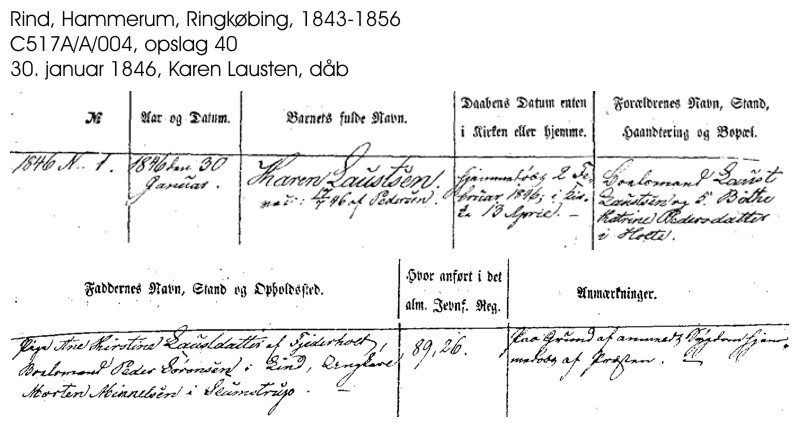 Rind, Hammerum, Ringkøbing, 1843-1856
C517A/A/004, opslag 40
30. januar 1846, Karen Lausten, dåb
№
Aar og Datum.
Barnets fulde Navn.
Daabens Datum enten
i Kirken eller hjemme.
Forældrenes Navn, Stand,
Haandtering og Bopæl.
1846 N. 1.
1846 den 30
Januar.
Karen Laustsen.
af Pedersen.
hjemmedøbt 2 Fe-
bruar 1846; i Kir-
ke 13 April. –
Boelsmand Laust
Laustsen og
Katrine Pedersdatter
i Holte.
Faddernes Navn, Stand og Opholdssted.
Hvor anført i det
alm. Jevnf. Reg.
Anmærkninger.
Pige Ane Kirstine Laustdatter af Fjederholt,
Boelsmand Peder Sörensen i Lind, Ungkarl
Morten Minnelsen i
89, 26.
Paa Grund af Sygdom hjem-
medøbt af Præsten.